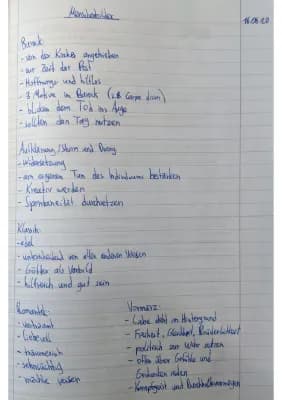 Menschenbilder
16.06.20
Barock:
- von der Kirche angetrieben
- zur Zeit der Pest
- Hoffnungs- und hilflos
- 3 Motive im Barock (z.B. Carpe diem)
- blicken dem Tod ins Auge
- sollten den Tag nutzen
Aufklärung/Sturm und Drang
- Widersetzung
- am eigenen Tun des Individuums bestärken
- Kreativ werden
- Spontaneität durchsetzen
Klassik:
- edel
- unterscheidend von allen anderen Wesen
- Götter als Vorbild
- hilfreich und gut sein
Romantik:
- verträumt
- Liebevoll
- träumerisch
- sehnsüchtig
- möchte reisen
Vormärz:
- Liebe steht im Hintergrund
- Freiheit, Gleichheit, Brüderlichkeit
- politisch zur Wehr setzen
- offen über Gefühle und
Gedanken reden
- Kampfgeist und